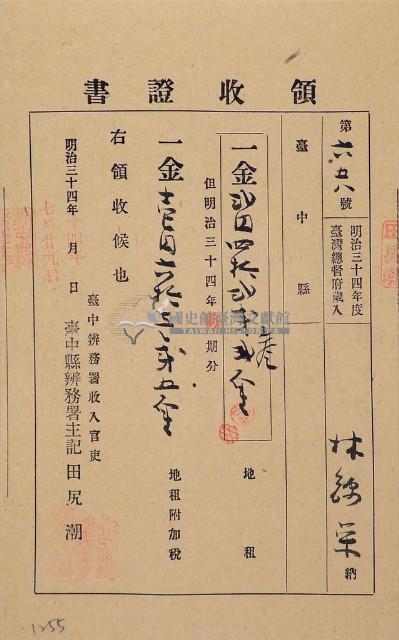 領收證書
第六五八號
明治三十四年度
臺灣總督府歲入
林錦榮 納
臺中縣
一金貳圓四拾貳錢貳厘 地租
但明治三十四年 期分
一金壹圓六拾 錢五厘 地租附加稅
右領收候也
明治三十四年 月 日
臺中辨務署收入官吏
臺中縣辨務署主記田尻潮
國史館臺灣文獻館
TAIWAN HISTORICA
1255